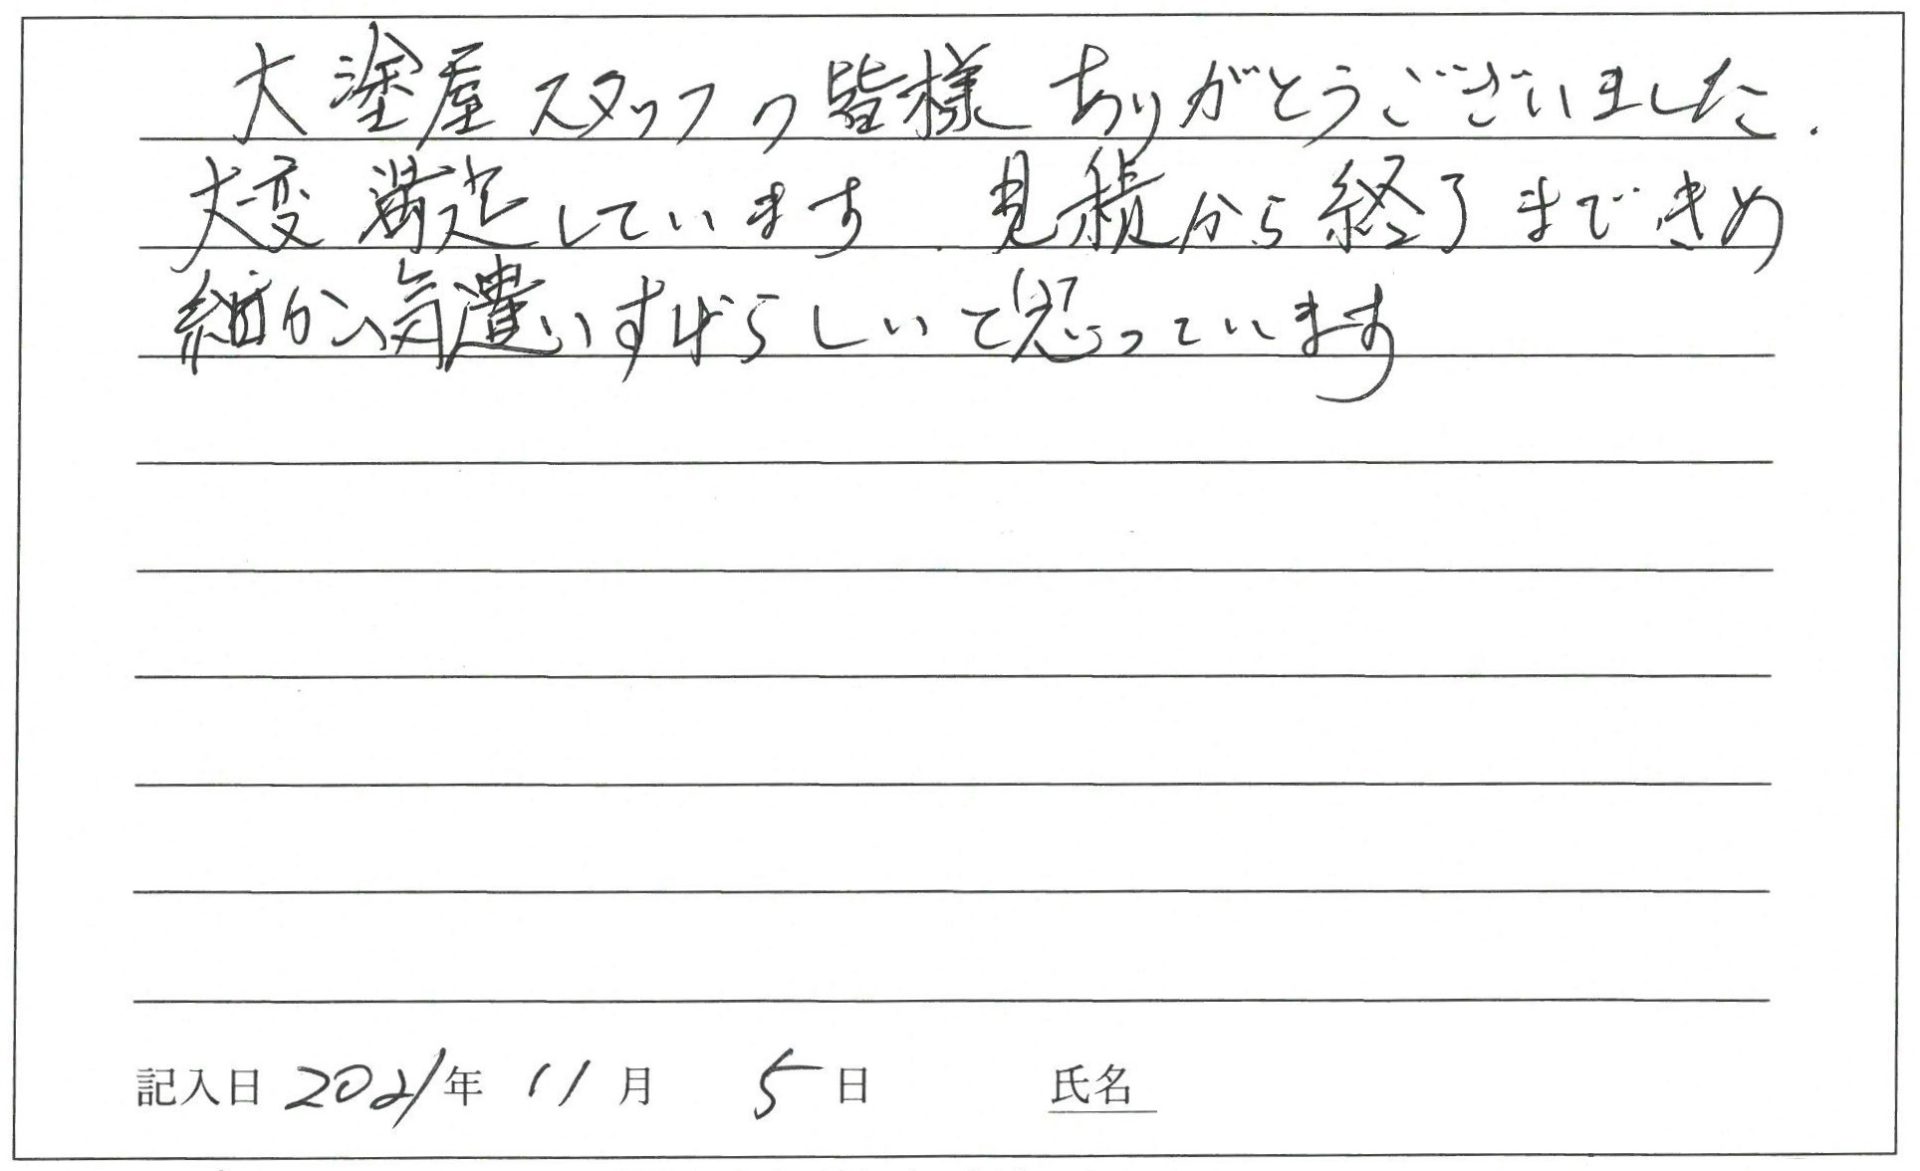 大塗屋スタッフの皆様ありがとうございました.
大変満足しています.見積から終了まできめ
細かい気遣いすばらしいと思っています
記入日 2021年 11月 5日 氏名